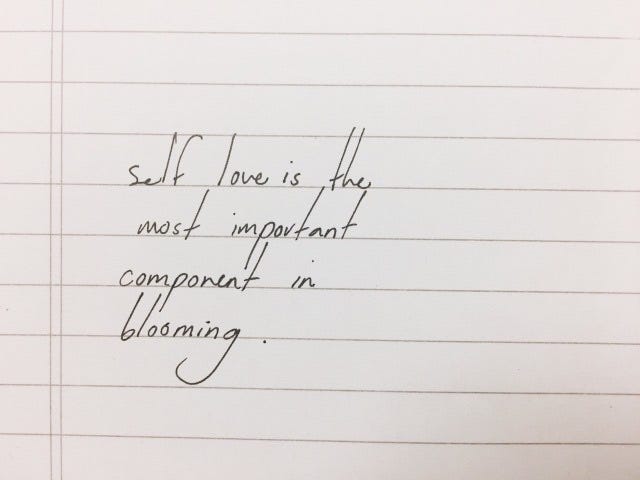 self love is the
most important
component in
blooming.